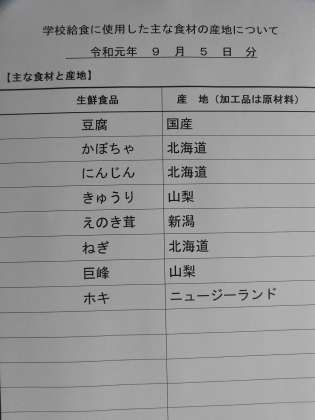 学校給食に使用した主な食材の産地について
令和元年 9 月 5 日 分
【主な食材と産地】
生鮮食品 産 地（加工品は原材料）
豆腐 国産
かぼちゃ 北海道
にんじん 北海道
きゅうり 山梨
えのき茸 新潟
ねぎ 北海道
巨峰 山梨
ホキ ニュージーランド